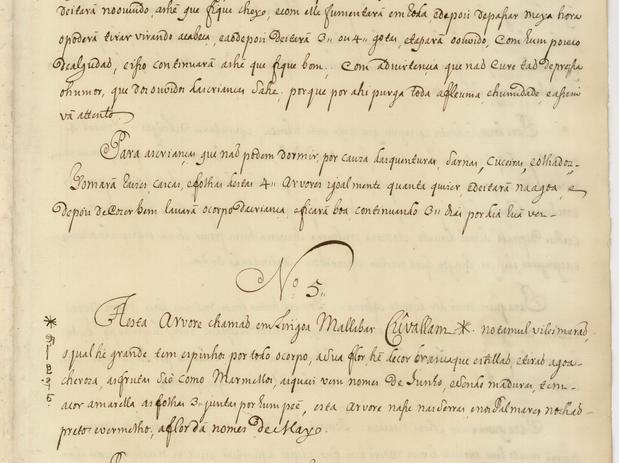 deitará no ouvido, athé que fique cheyo, e com elle fumentará em roda, e depois de passar meya hora
o poderá tirar virando a cabeça, e ao depois deiterá 3" ou 4" gotas, e tapará o ouvido, com hum pouco
de algudaõ, e isso continuará athé que fique bom, Com advirtencia que naõ Cure taõ de pressa
o humor, que dos ouvidos das crianças Sahe, porque por ahi purga toda a fleuma, e humidade, e assim
vá attento.
Para as crianças que naõ podem dormir, por cauza das quenturas, Sarnas, Cuceiras, e olhados,
Tomará raizes, cascas, e folhas destas 4" Arvores igoalmente quanta quizer, e deitará na agoa, e
depois de Cozer bem lavará o corpo da criança, e ficará boa continuando 3" dias por dia huã vez
Nº 5"
A esta Arvore chamaõ em lingoa Mallabar Cûvallam * no tamul vilcimaraõ,
o qual hé grande, tem espinhos por todo o corpo, a Sua flor, hé de cor branca que estillad e tiraõ agoa
cheroza, as frutas Saõ como Marmellos, as quais vem nomes De Junho, e sendo maduras, tem
a cor amarella, as folhas 3" juntas por hum peê, esta Arvore nasse nas Serras e nos Palmares no chaõ
preto e vermelho, a flor dá nomes De Mayo.